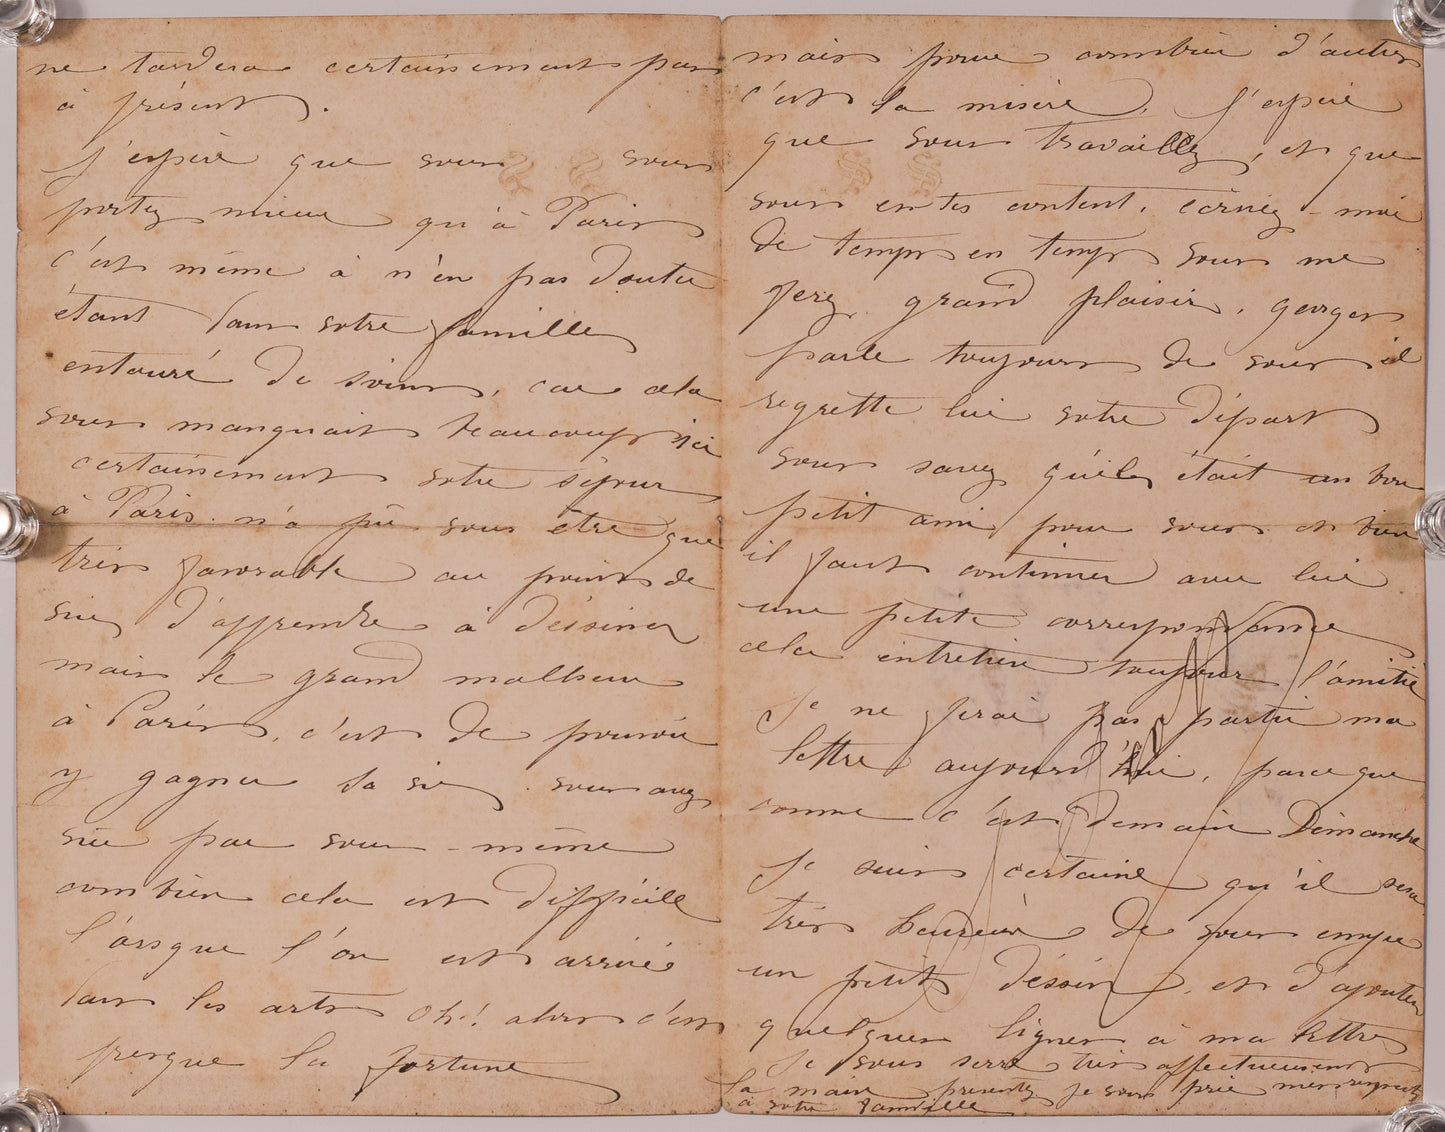 ne tardera certainement pas
à présent.
J'espère que vous vous
portez mieux qu'à Paris
c'est même à n'en pas douter
étant dans votre famille
entouré de soins, car cela
vous manquait beaucoup ici
certainement votre séjour
à Paris n'a pû vous être que
très favorable au point de
vue d'apprendre à déssiner
mais le grand malheur
à Paris, c'est de pouvoir
y gagner sa vie, vous avez
vu par vous-même
combien cela est difficille
l'orsque l'on est arrivé
dans les arts oh! alors c'est
presque la fortune
mais pour combien d'autres
c'est la misère, J'espère
que vous travaillez, et que
vous en tes content, écrivez-moi
de temps en temps vous me
ferez grand plaisir, georges
parle toujours de vous il
regrette lui votre départ
vous savez qu'il était un bon
petit ami pour vous et bien
il faut continuer avec lui
une petite correspondance
cela entretien toujour l'amitié
Je ne ferai pas partir ma
lettre aujourd'hui, parceque
comme c'est demain Dimanche
Je suis certaine qu'il sera
très heureux de vous envoyer
un petit déssin, et d'ajouter
quelques lignes à ma lettre
Je vous serre très affectueusement
la main presentez Je vous prie mes respects
à votre famille